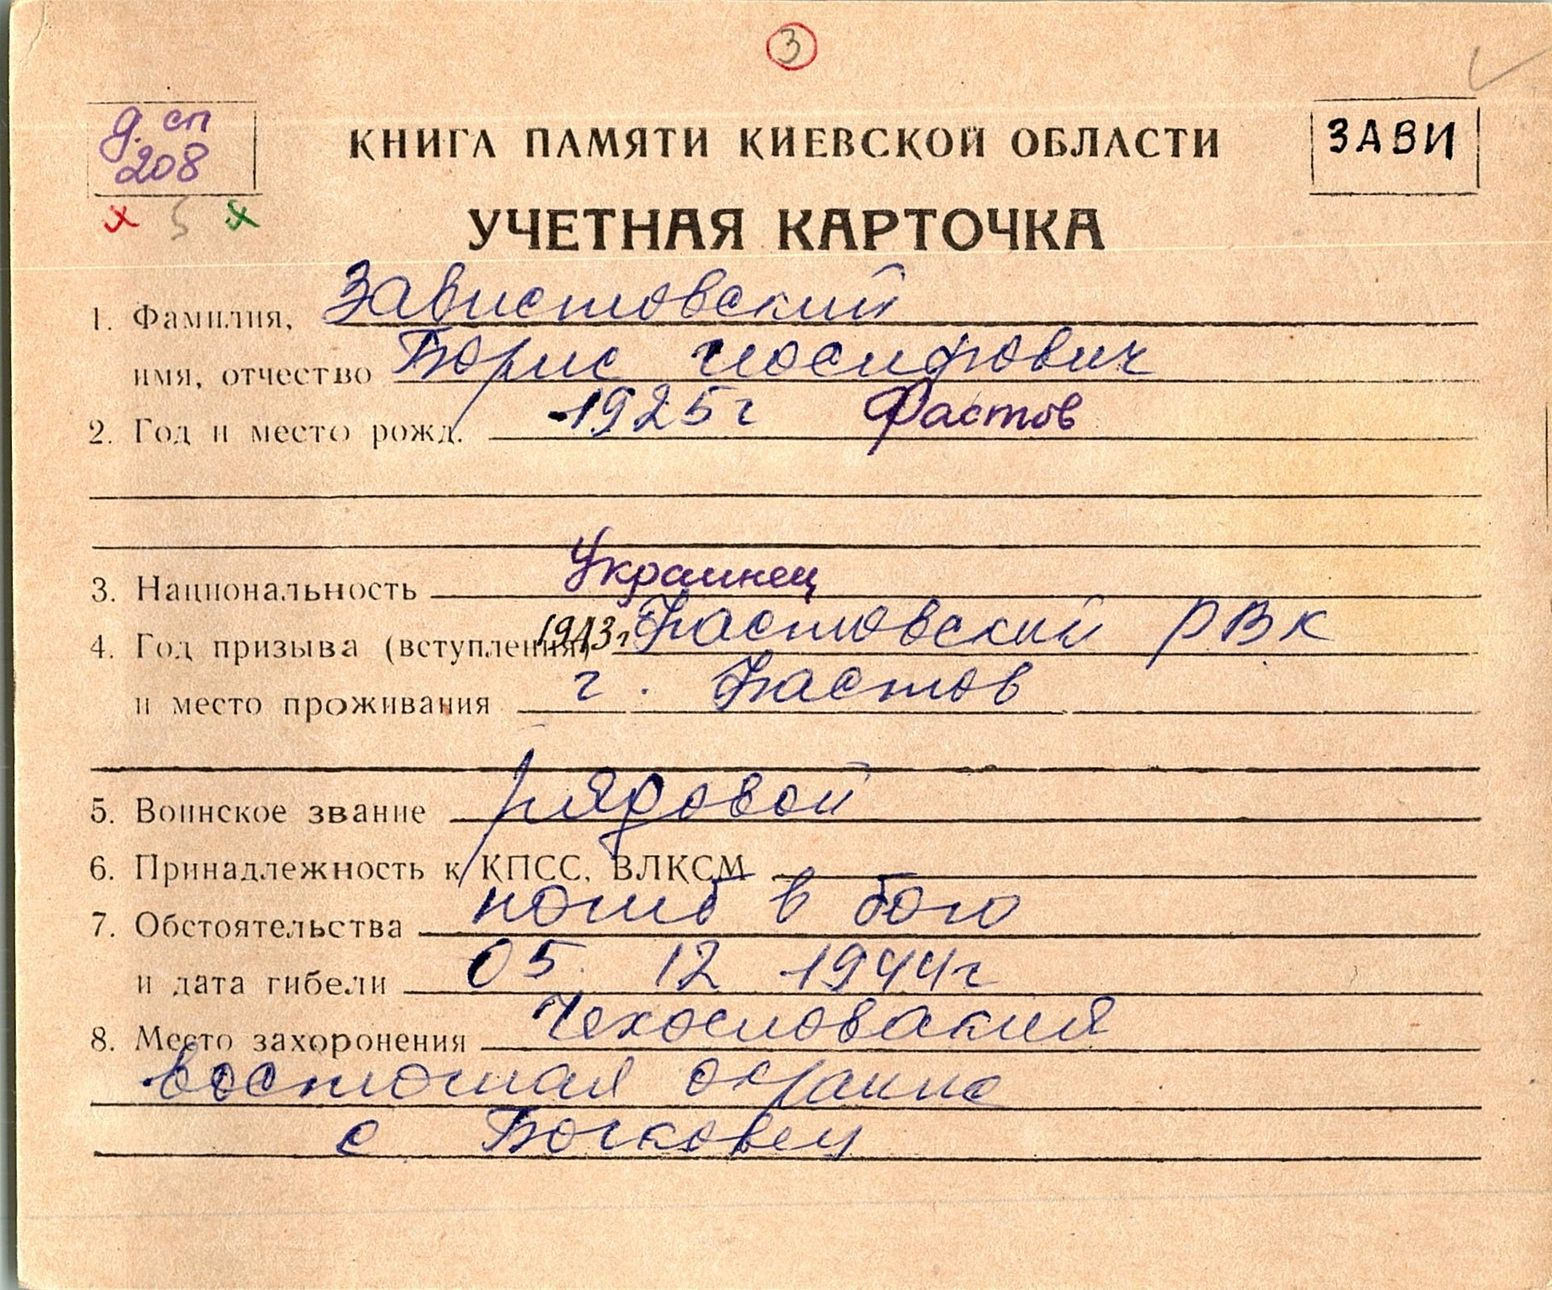 3
д. сп
208
5
КНИГА ПАМЯТИ КИЕВСКОЙ ОБЛАСТИ
ЗАВИ
УЧЕТНАЯ КАРТОЧКА
1. Фамилия, Завистовский
имя, отчество Борис Иосифович
2. Год и место рожд. 1925г Фастов
3. Национальность Украинец
4. Год призыва (вступления) 1943г Фастовский РВК
и место проживания г. Фастов
5. Воинское звание рядовой
6. Принадлежность к КПСС, ВЛКСМ
7. Обстоятельства погиб в бою
и дата гибели 05. 12 1944г
8. Место захоронения Чехословакия
восточная окраина
с Бочковец